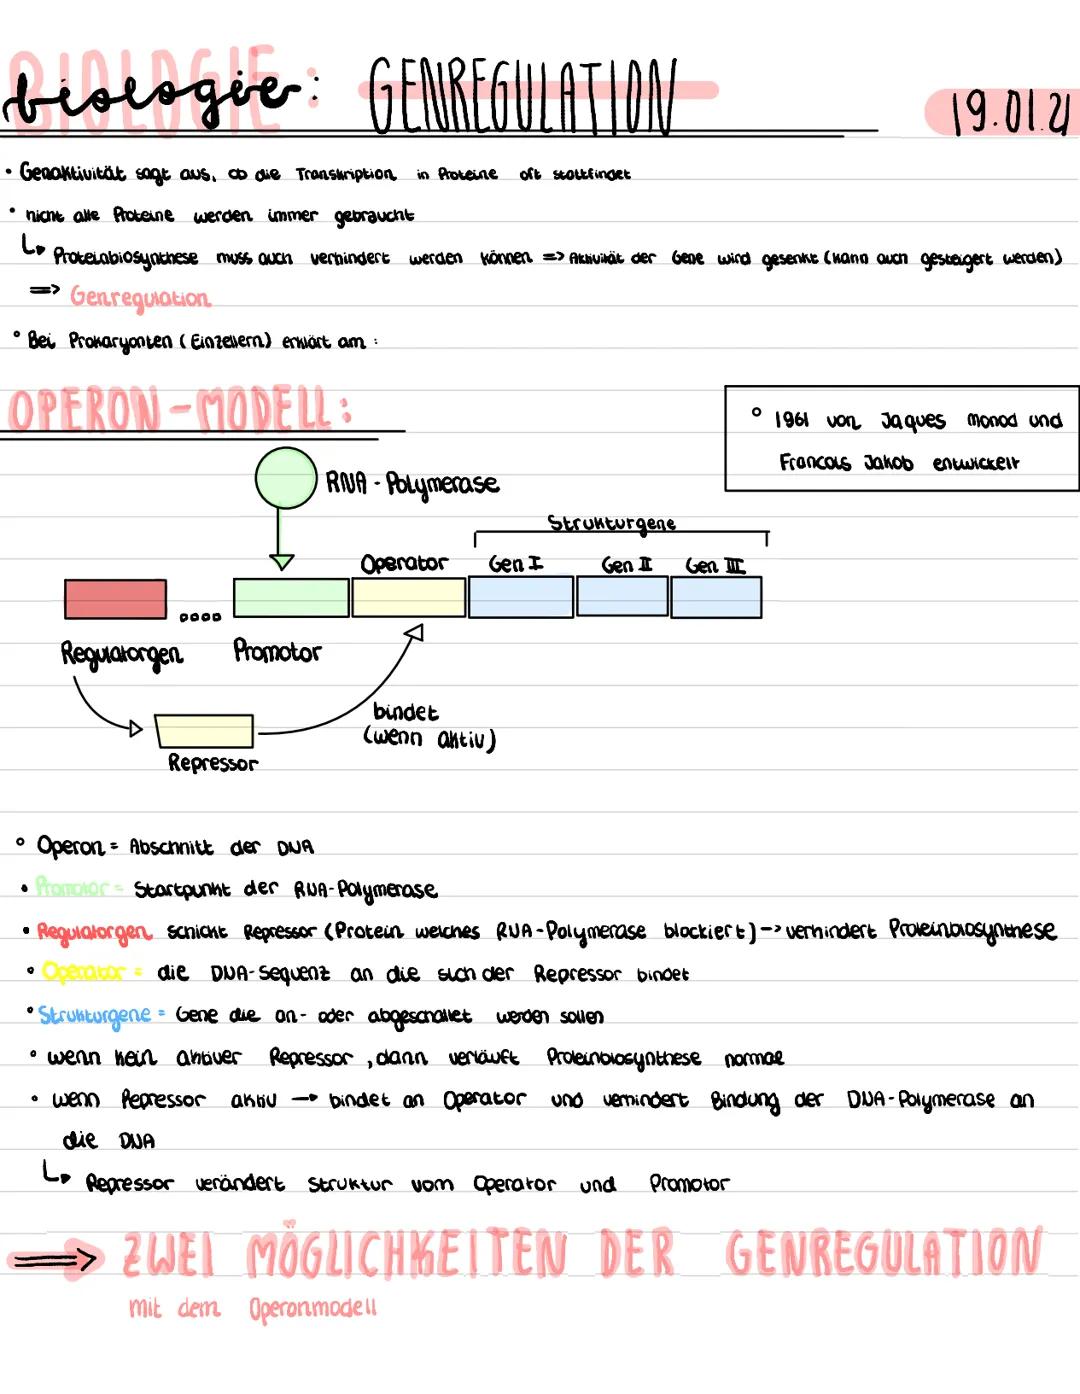 BIOLOGIE
biologie: GENREGULATION
19.01.21
• Genaktivität sagt aus, ob die Transkription in Proteine oft stattfindet
• nicht alle Proteine werden immer gebraucht
↳ Proteinbiosynthese muss auch verhindert werden können => Aktivität der Gene wird gesenkt (kann auch gesteigert werden)
=> Genregulation
° Bei Prokaryonten (Einzellern) erklärt am:
OPERON-MODELL:
° 1961 von Jaques Monod und
Francois Jakob entwickelt
RNA-Polymerase
Strukturgene
Operator Gen I Gen II Gen III
Regulatorgen Promotor
bindet
(wenn aktiv)
Repressor
° Operon = Abschnitt der DNA
• Promotor = Startpunkt der RNA-Polymerase
• Regulatorgen schickt Repressor (Protein welches RNA-Polymerase blockiert) -> verhindert Proteinbiosynthese
• Operator = die DNA-Sequenz an die sich der Repressor bindet
° Strukturgene = Gene die an- oder abgeschaltet werden sollen
• wenn kein aktiver Repressor, dann verläuft Proteinbiosynthese normal
• wenn Repressor aktiv → bindet an Operator und verhindert Bindung der DNA-Polymerase an
die DNA
↳ Repressor verändert Struktur vom Operator und Promotor
⇒ ZWEI MÖGLICHKEITEN DER GENREGULATION
mit dem Operonmodell